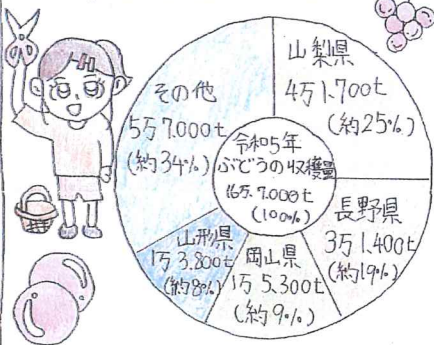 山梨県
4万1.700t
(約25%)
長野県
3万1.400t
(約19%)
岡山県
1万5.300t
(約9%)
山形県
1万3.800t
(約8%)
その他
5万7.000t
(約34%)
令和5年
ぶどうの収穫量
16万.7.000t
(100%)